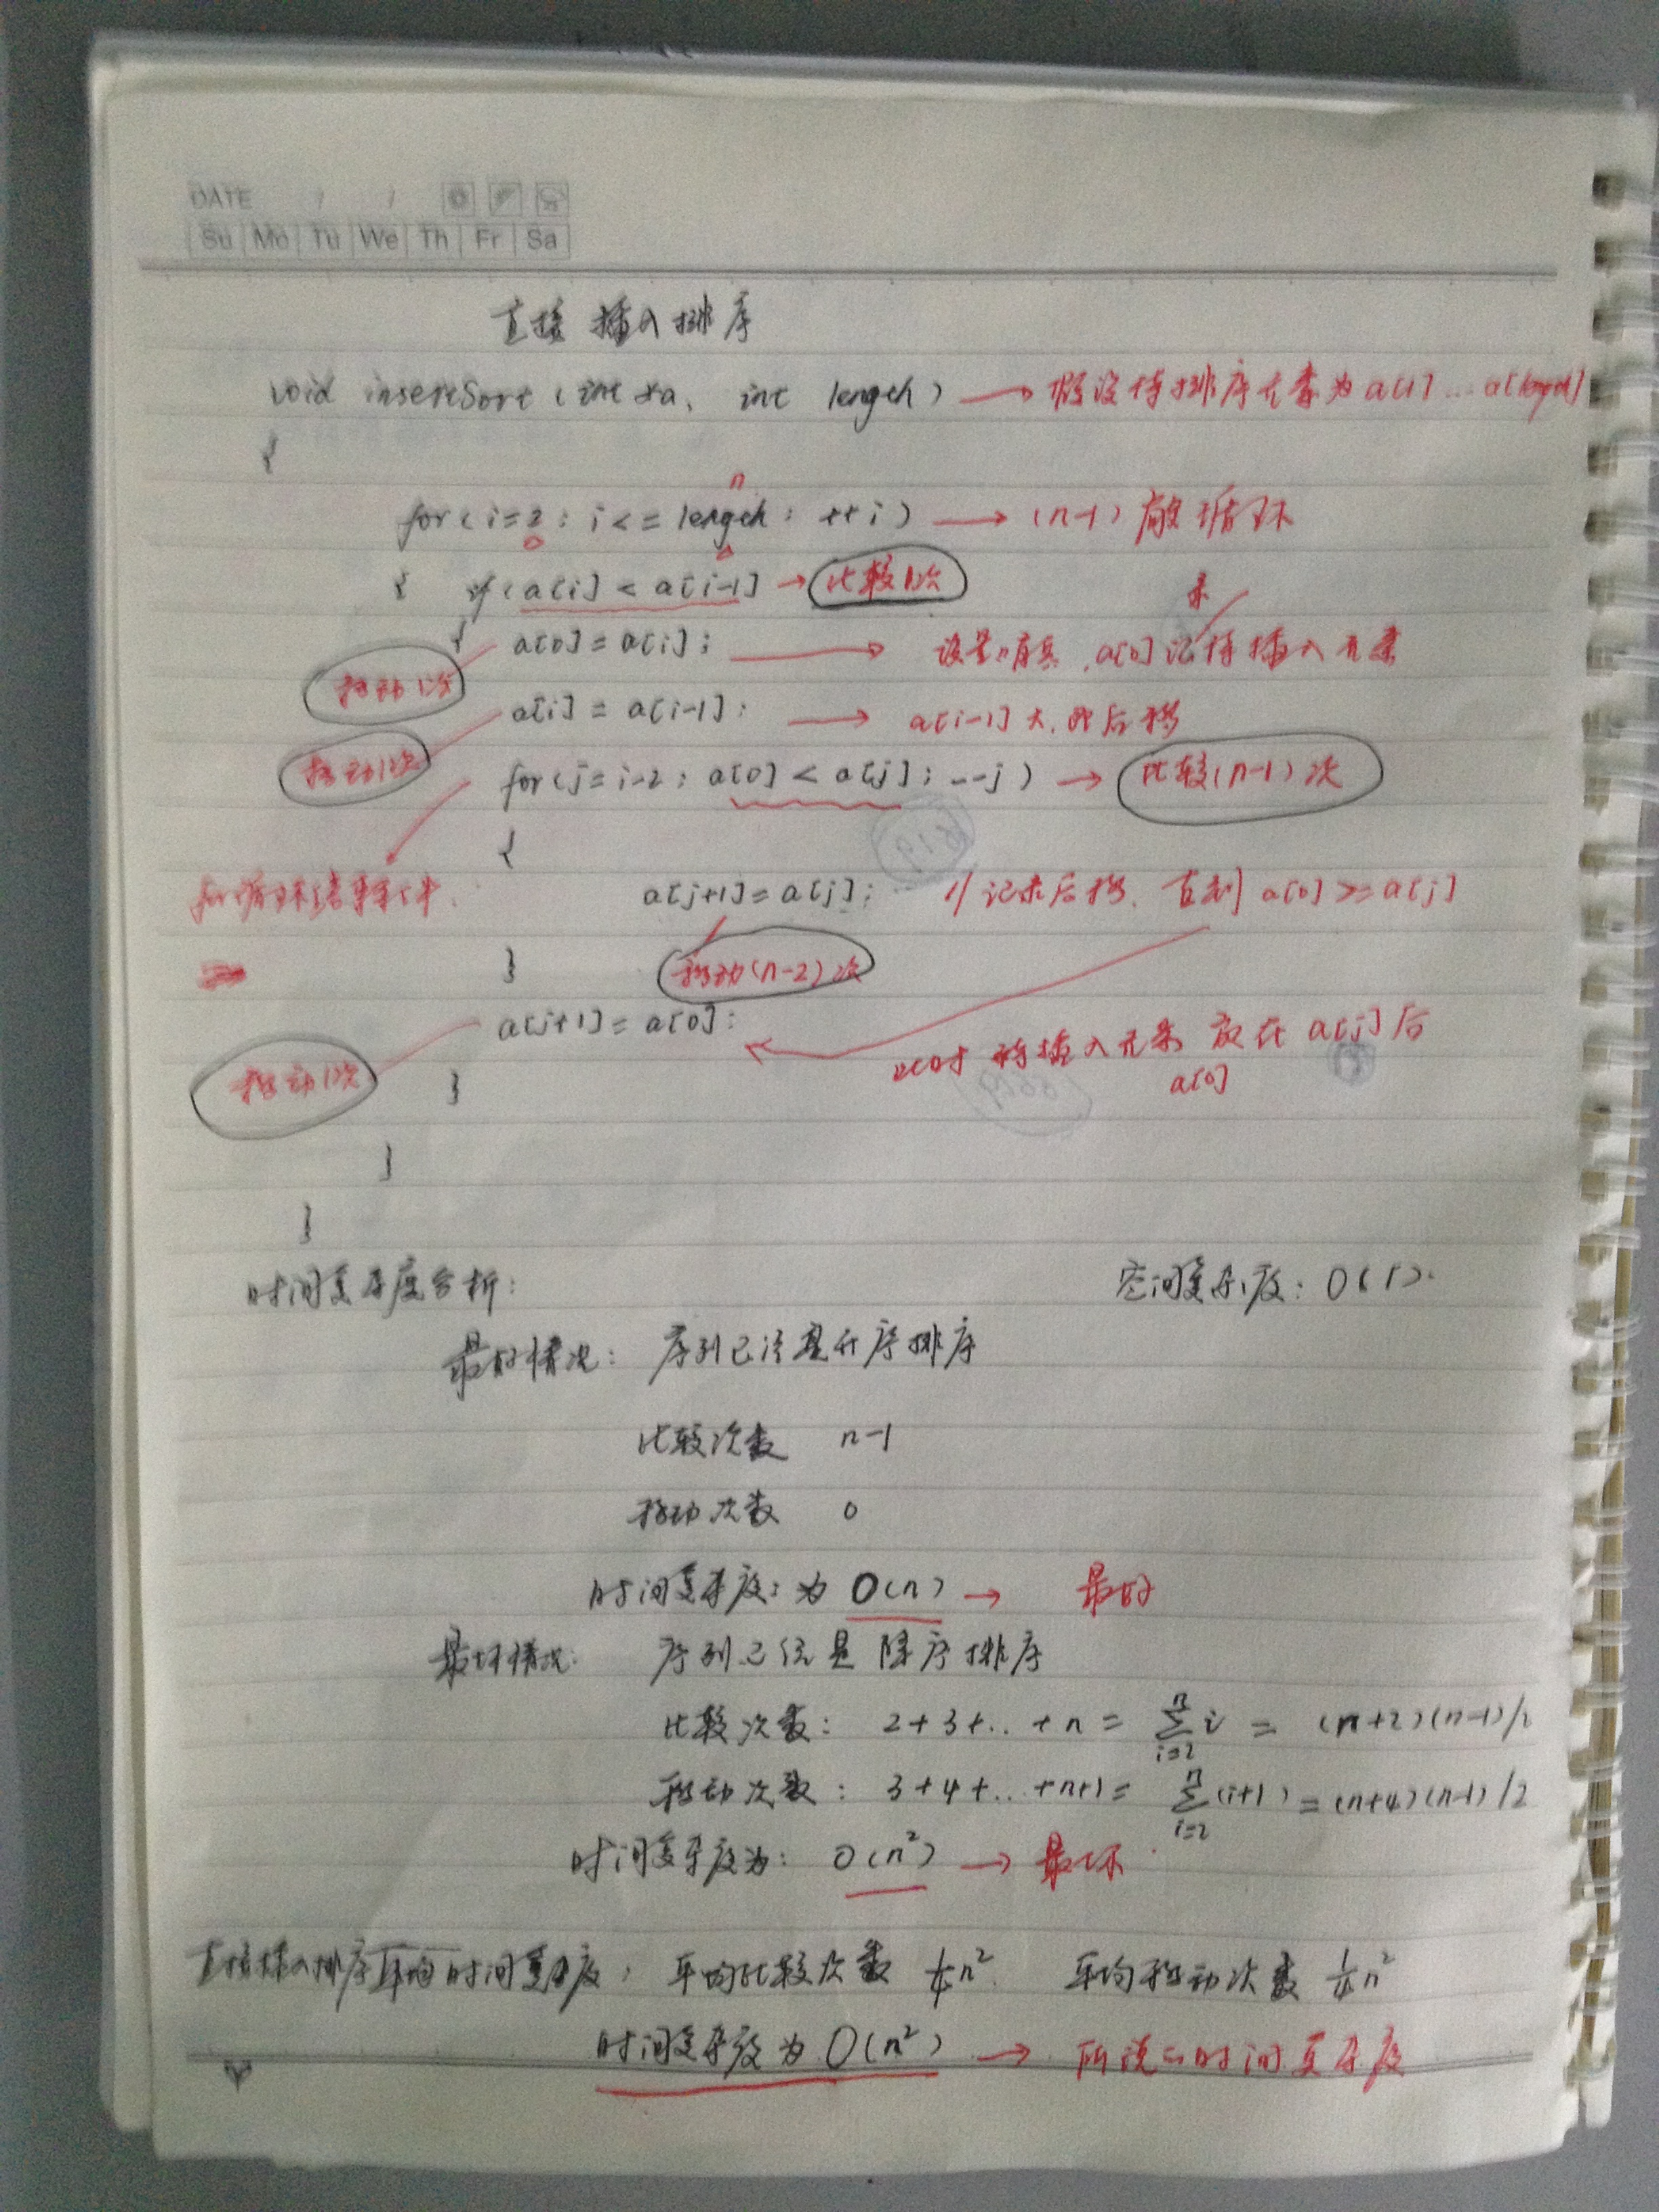 DATE / /
Su Mo Tu We Th Fr Sa
直接插入排序
void insertSort (int *a, int length) → 假设待排序元素为a[1]...a[length]
{
n
for(i=2; i<=length; ++i) → (n-1)循环
{ if(a[i] < a[i-1] → 比较1次
{ a[0]=a[i]; → 设置哨兵,a[0]记录待插入元素
移动1次
a[i] = a[i-1]; → a[i-1]大,则后移
移动1次
for(j=i-2; a[0] < a[j]; --j) → 比较(n-1)次
{
for循环结束条件
a[j+1]=a[j]; // 记录后移,直到a[0]>=a[j]
} 移动(n-2)次
a[j+1]=a[0];
待插入元素放在a[j]后
a[0]
移动1次
}
}
}
时间复杂度分析: 空间复杂度: O(1).
最好情况: 序列已经是升序排序
比较次数 n-1
移动次数 0
时间复杂度:为 O(n) → 最好
最坏情况: 序列已经是降序排序
比较次数: 2+3+..+n = ∑_{i=2}^{n} i = (n+2)(n-1)/2
移动次数: 3+4+...+n+1 = ∑_{i=2}^{n} (i+1) = (n+4)(n-1)/2
时间复杂度为: O(n²) → 最坏
直接插入排序平均时间复杂度: 平均比较次数 ¼n² 平均移动次数 ¼n²
时间复杂度为 O(n²) → 所说的时间复杂度